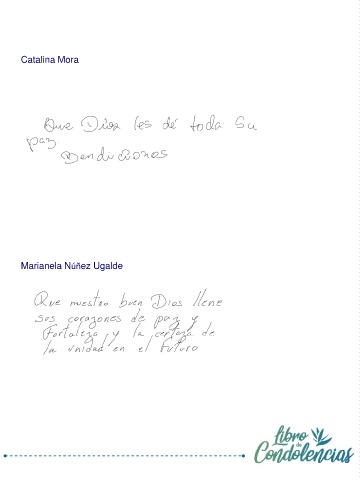 Catalina Mora
Que Dios les dé toda su
paz
Bendiciones
Marianela Núñez Ugalde
Que nuestro buen Dios llene
sus corazones de paz y
Fortaleza y la certeza de
la unidad en el futuro
Libro
de
Condolencias